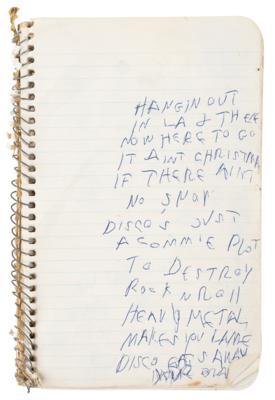 HANGIN OUT
IN LA & THERE
NOWHERE TO GO
IT AINT CHRISTMAS
IF THERE AINT
NO SNOW
DISCO'S JUST
A COMMIE PLOT
TO DESTROY
ROCK N ROLL
HEAVY METAL
MAKES YOU LAME
DISCO EATS AWAY